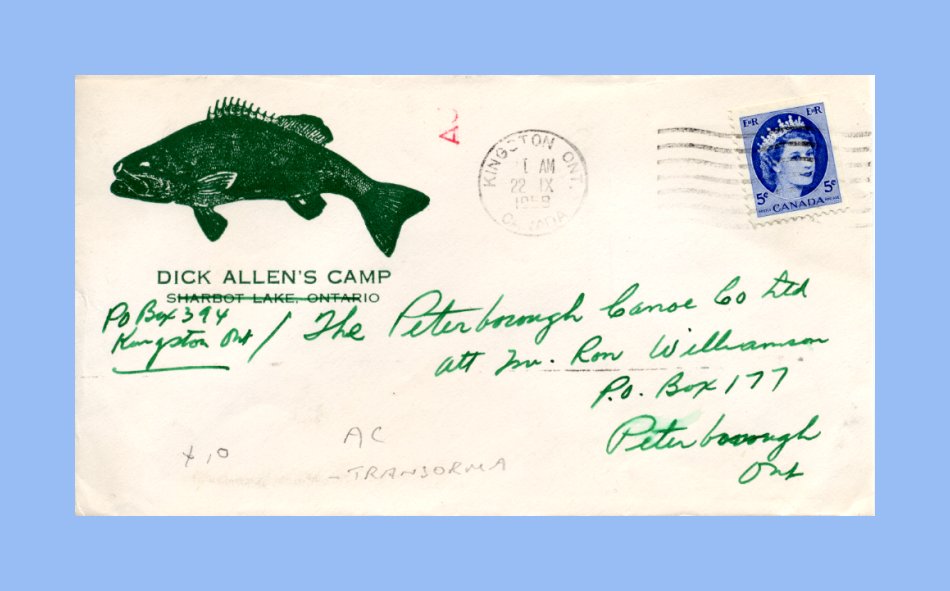 DICK ALLEN'S CAMP
SHARBOT LAKE, ONTARIO
PO Box 394
Kingston Ont
KINGSTON ONT.
AM
22 IX
CANADA
E R E R
5¢ 5¢
CANADA
The Peterborough Canoe Co Ltd
att Mr. Ron Williamson
P.O. Box 177
Peterborough
Ont
AC
-TRANSORMA